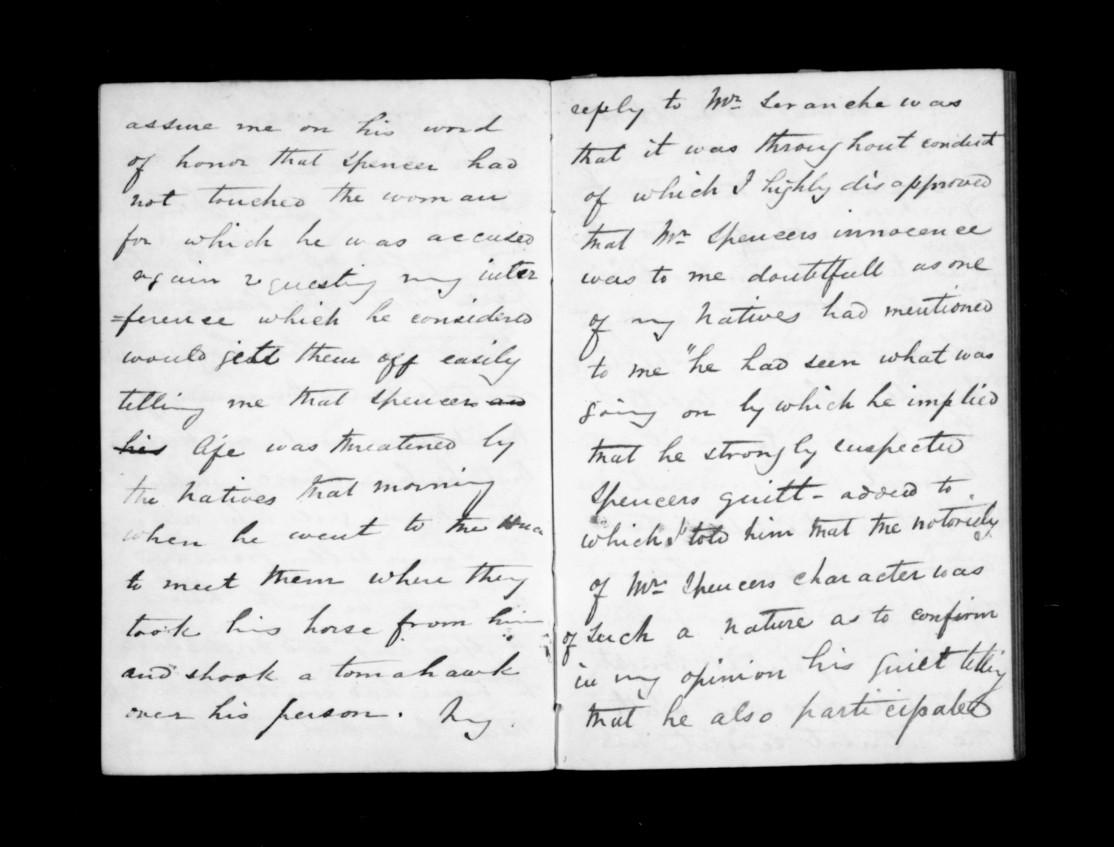 assure me on his word
of honor that Spencer had
not touched the woman
for which he was accused
again requesting my inter
=ference which he considered
would gett them off easily
telling me that Spencers an
his life was threatened by
the Natives that morning
when he went to the Huia
to meet them where they
took his horse from him
and shook a tomahawk
over his person. My
reply to Mr. Seranche was
that it was throughout conduct
of which I highly disapproved
that Mr. Spencers innocence
was to me doubtfull as one
of my Natives had mentioned
to me "he had seen what was
going on by which he implied
that he strongly suspected
Spencers guilt - added to
which I told him that the notoriety
of Mr. Spencers character was
of such a nature as to confirm
in my opinion his guilt telling
that he also participated